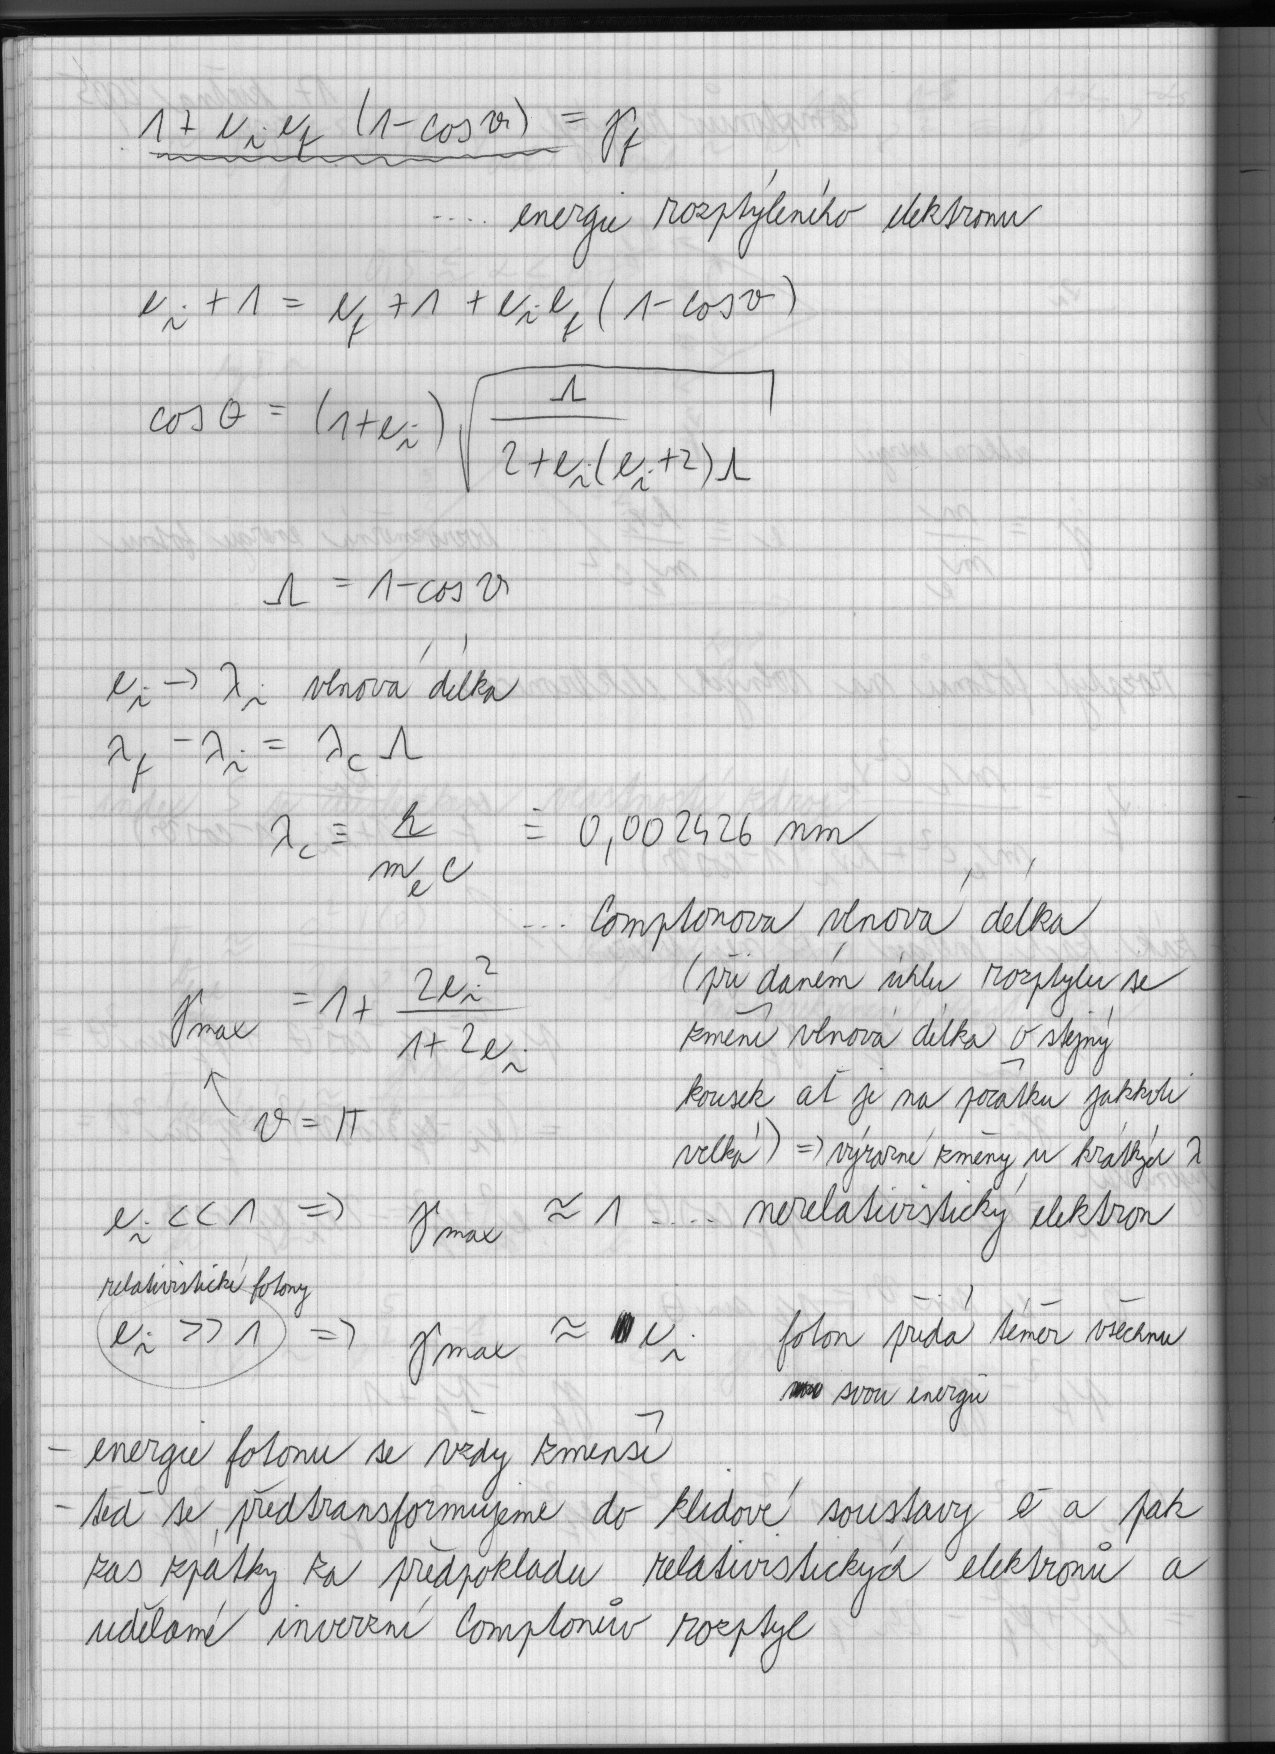 1 + e_i e_f (1 - cos ϑ) = γ_f
.... energie rozptýleného elektronu
e_i + 1 = e_f + 1 + e_i e_f (1 - cos ϑ)
cos θ = (1 + e_i) √(Λ / (2 + e_i (e_i + 2) Λ))
Λ = 1 - cos ϑ
e_i → λ_i vlnová délka
λ_f - λ_i = λ_c Λ
λ_c ≡ h / (m_e c) ≐ 0,002426 nm
... Comptonova vlnová délka
(při daném úhlu rozptylu se
změní vlnová délka o stejný
kousek ať je na počátku jakkoli
velká) => výrazné změny u krátkých λ
γ_max = 1 + 2e_i² / (1 + 2e_i)
↖ ϑ = π
e_i << 1 => γ_max ≈ 1 .... nerelativistický elektron
relativistické fotony
e_i >> 1 => γ_max ≈ e_i foton předá téměř všechnu
svou energii
- energie fotonu se vždy zmenší
- teď se předtransformujeme do klidové soustavy e⁻ a pak
zas zpátky za předpokladu relativistických elektronů a
udělámé inverzní Comptonův rozptyl